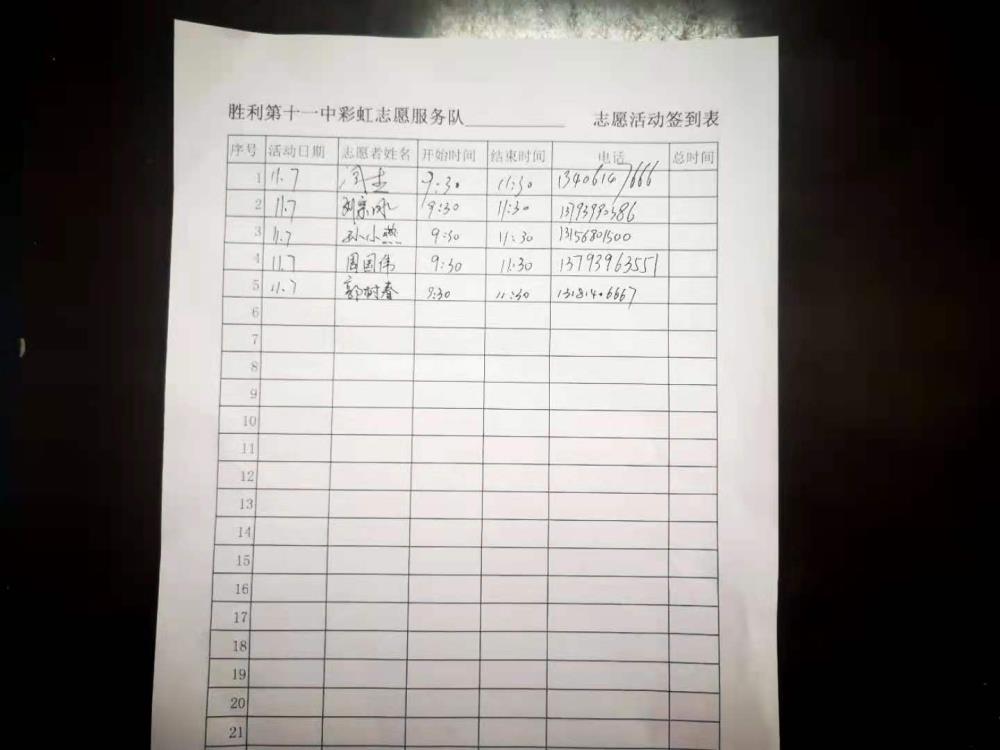 胜利第十一中彩虹志愿服务队__________ 志愿活动签到表
序号 活动日期 志愿者姓名 开始时间 结束时间 电话 总时间
1 11.7 闫杰 9:30 11:30 13406147666
2 11.7 9:30 11:30
3 11.7 孙小燕 9:30 11:30 13156801500
4 11.7 周国伟 9:30 11:30 13793963551
5 11.7 郭树春 9:30 11:30 13181406667
6
7
8
9
10
11
12
13
14
15
16
17
18
19
20
21